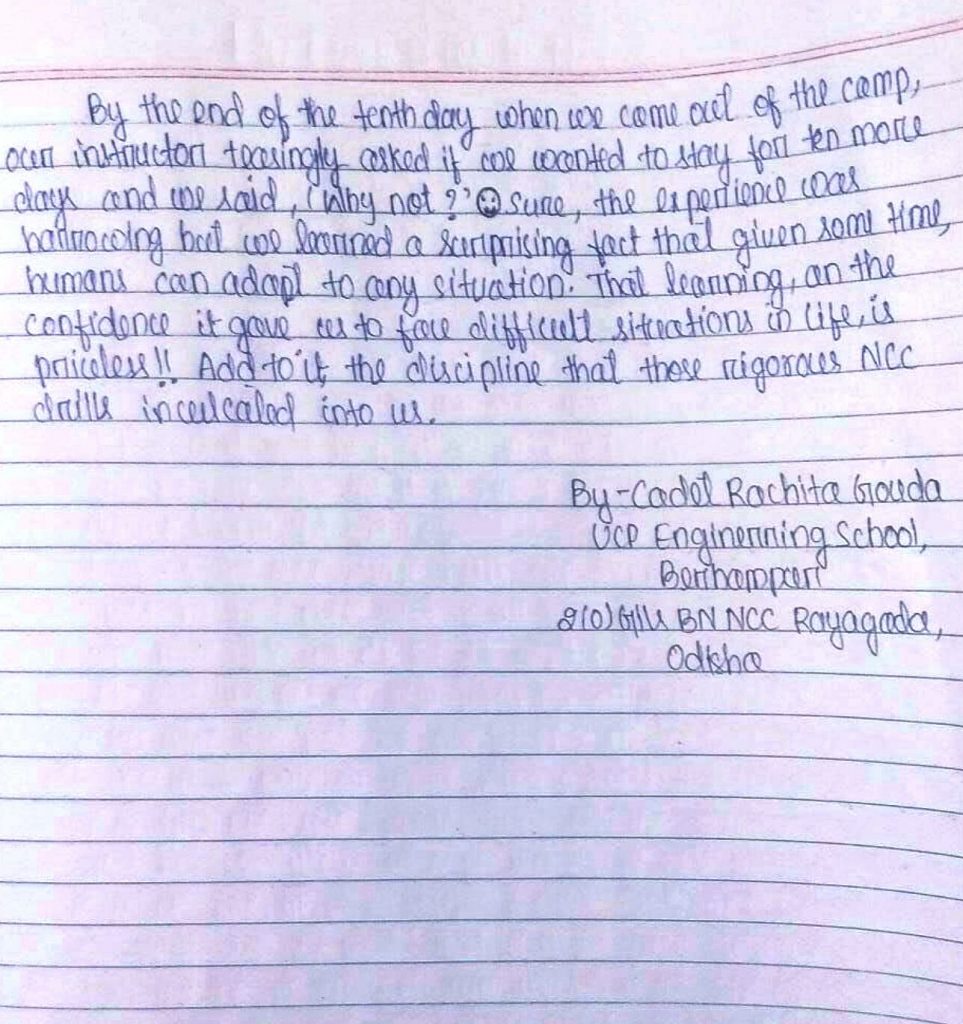 By the end of the tenth day when we come out of the camp,
our instructor teasingly asked if we wanted to stay for ten more
days and we said, 'Why not?' ☺ Sure, the experience was
harrowing but we learned a surprising fact that given some time,
humans can adapt to any situation. That learning, an the
confidence it gave us to face difficult situations in life, is
priceless!! Add to it, the discipline that those rigorous NCC
drills inculcated into us.
By - Cadet Rachita Gouda
UCP Enginerring School,
Berhampur
2(O) BN NCC Rayagada,
Odisha